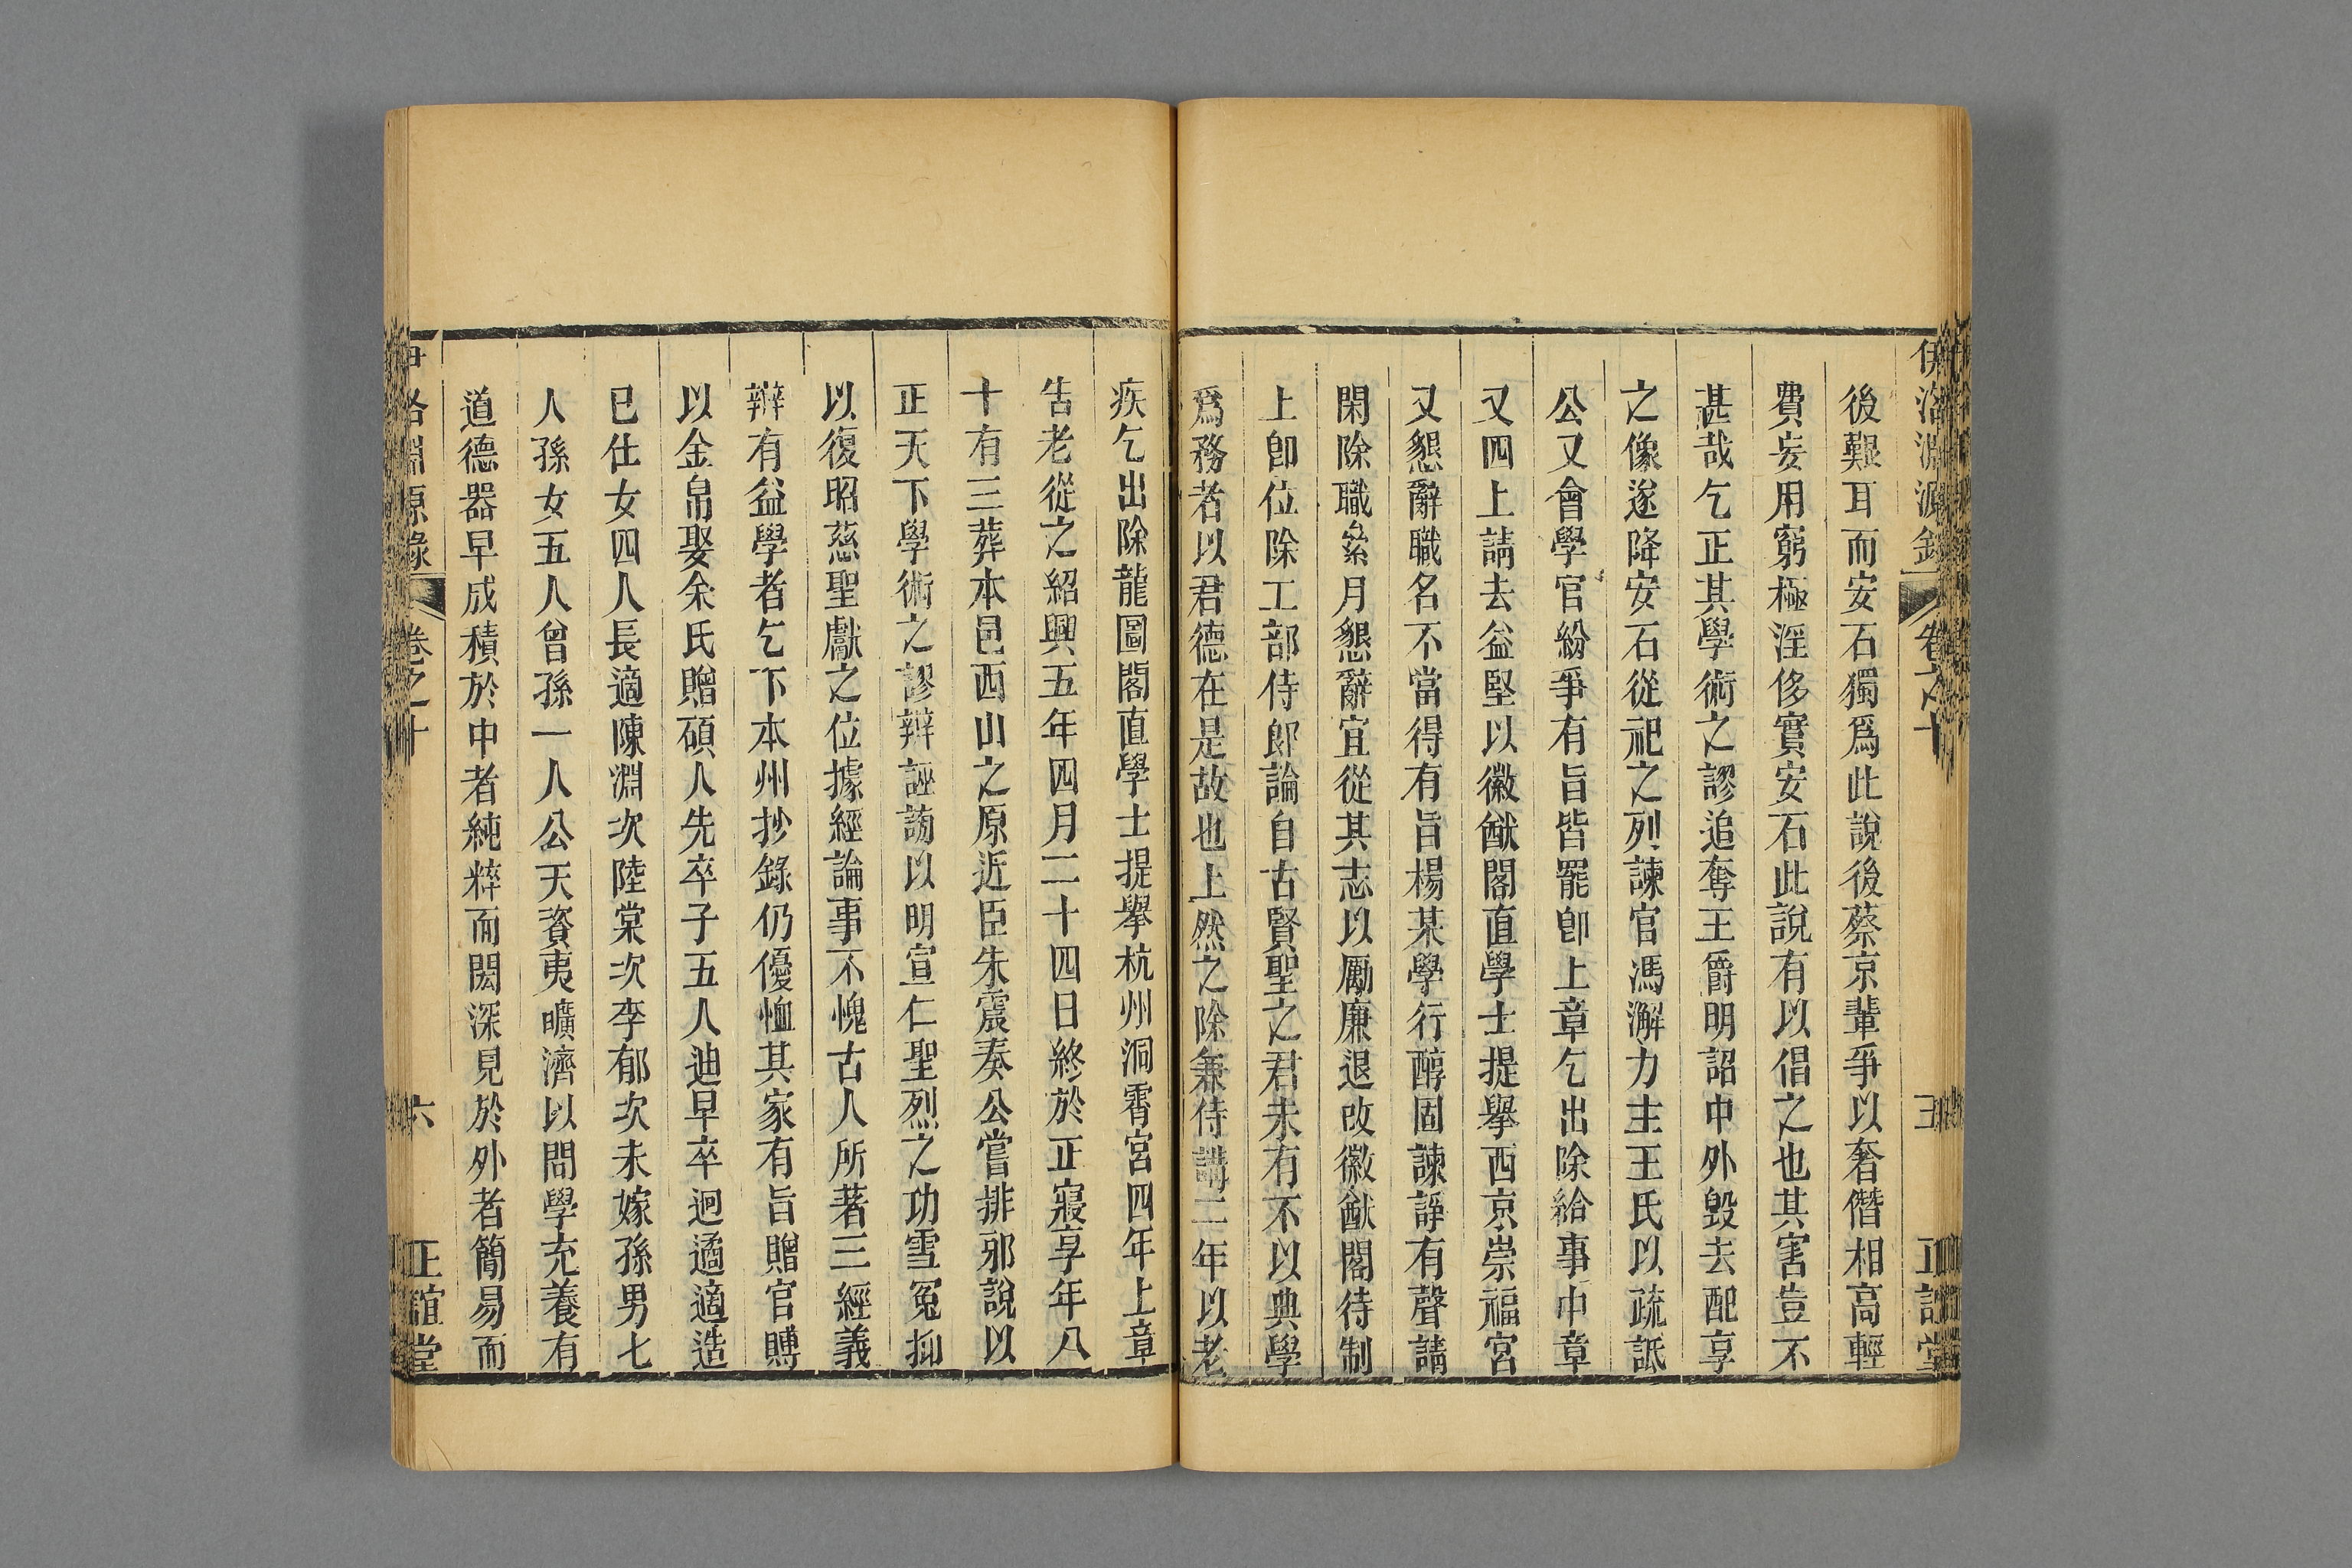 伊洛淵源錄 卷之十 五 正誼堂
後艱耳而安石獨爲此說後蔡京輩爭以奢僭相高輕
費妄用窮極淫侈實安石此說有以倡之也其害豈不
甚哉乞正其學術之謬追奪王爵明詔中外毀去配享
之像遂降安石從祀之列諫官馮澥力主王氏以疏詆
公又會學官紛爭有旨皆罷卽上章乞出除給事中章
又四上請去益堅以徽猷閣直學士提舉西京崇福宮
又懇辭職名不當得有旨楊某學行醇固諫諍有聲請
閑除職絫月懇辭宜從其志以厲廉退改徽猷閣待制
上卽位除工部侍郎論自古賢聖之君未有不以典學
爲務者以君德在是故也上然之除兼侍講二年以老
疾乞出除龍圖閣直學士提舉杭州洞霄宮四年上章
告老從之紹興五年四月二十四日終於正寢享年八
十有三葬本邑西山之原近臣朱震奏公嘗排邪說以
正天下學術之謬辯誣謗以明宣仁聖烈之功雪冤抑
以復昭慈聖獻之位據經論事不愧古人所著三經義
辯有益學者乞下本州抄錄仍優恤其家有旨贈官賻
以金帛娶余氏贈碩人先卒子五人迪早卒迥遹適造
已仕女四人長適陳淵次陸棠次李郁次未嫁孫男七
人孫女五人曾孫一人公天資夷曠濟以問學充養有
道德器早成積於中者純粹而閎深見於外者簡易而
伊洛淵源錄 卷之十 六 正誼堂